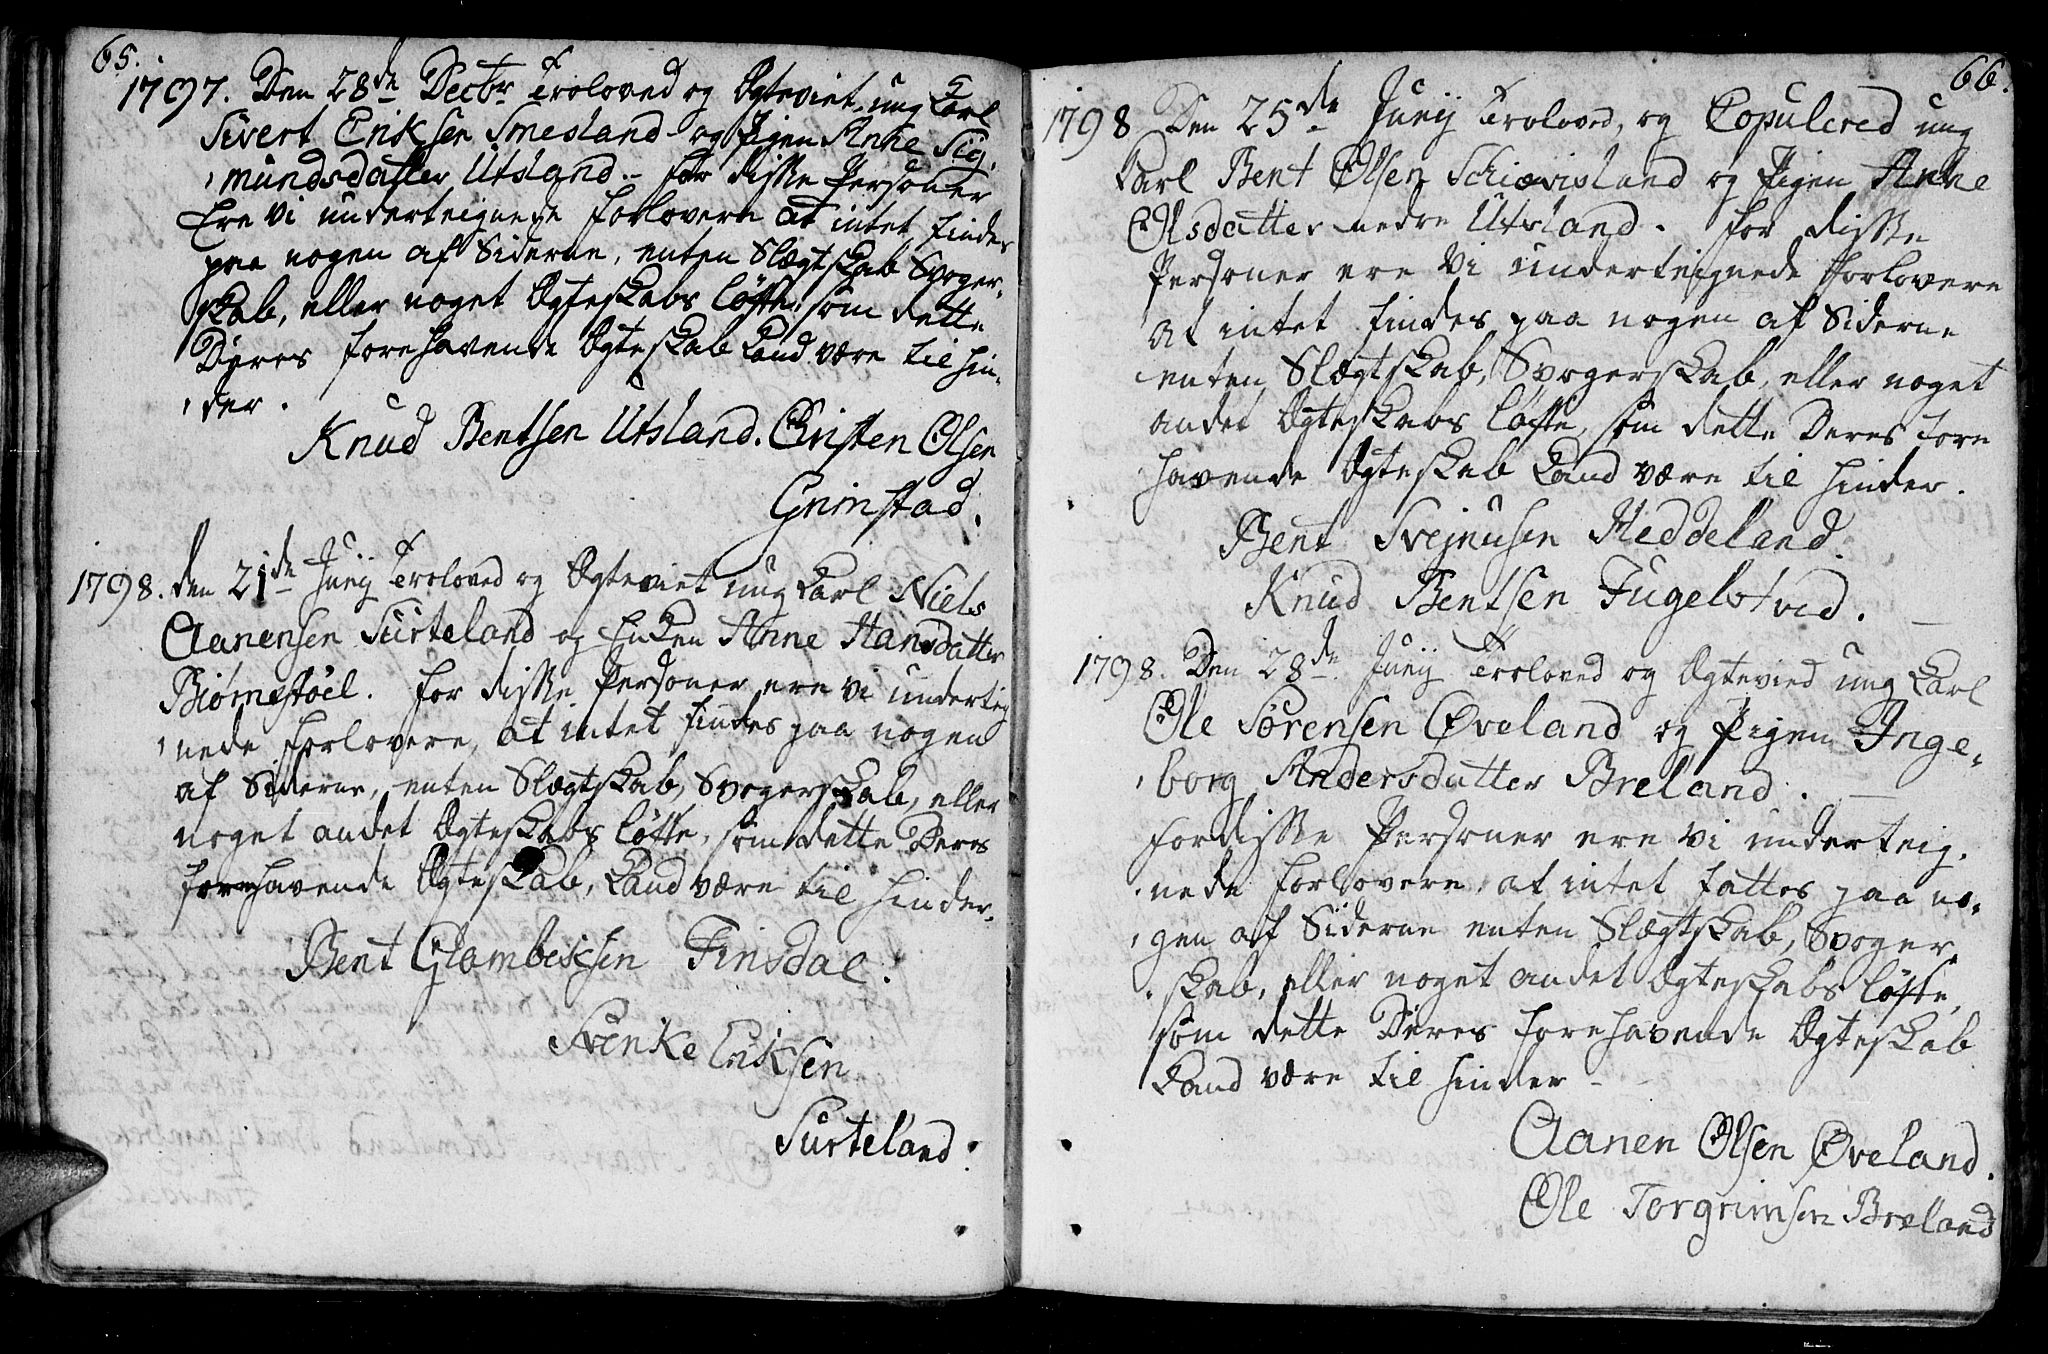 65.
1797. Den 28de Decbr Troloved og Ægteviet ung Karl
Sivert Eriksen Smesland og Pigen Anne Sig,
mundsdatter Utsland. For disse Personer
Ere vi underteignede forlovere at intet findes
paa nogen af Siderne, enten Slægtskab Svoger,
skab, eller noget Ægteskabs løfte, som dette
Deres forehavende Ægteskab Kand være til Hin,
der.
Knud Bentsen Utsland. Christen Olsen
Grimstad.
1798. den 21de Junij Troloved og Ægteviet ung Karl Niels
Aanensen Surteland og Enken Anne Hansdatter
Biørnestøel. For disse Personer ere vi underteig
nede forlovere, at intet findes paa nogen
af Siderne, enten Slægtskab, Svogerskab, eller
noget andet Ægteskabs løfte, som dette Deres
forehavende Ægteskab, Kand være til Hinder.
Bent Finsdal.
Svenke Eriksen
Surteland.
66.
1798 Den 25de Junij Troloved, og Copulered ung
Karl Bent Olsen Schiævisland og Pigen Anne
Olsdatter nedre Utsland. For disse
Personer ere Vi underteignede forlovere
at intet findes paa nogen af Siderne
enten Slægtskab, Svogerskab, eller noget
andet Ægteskabs løfte, som dette Deres fore
havende Ægteskab Kand være til Hinder.
Bent Svejnusen Heddeland.
Knud Bentsen Fugelstved.
1798. Den 28de Junij Troloved og Ægtevied ung Karl
Ole Sørensen Øveland og Pigen Inge,
borg Andersdatter Breland.
for disse Personer ere vi underteig,
nede forlovere, at intet fattes paa no,
gen af Siderne enten Slægtskab, Svoger,
skab, eller noget andet Ægteskabs løfte,
som dette Deres forehavende Ægteskab
Kand være til Hinder
Aanen Olsen Øveland.
Ole Torgrimsen Breland